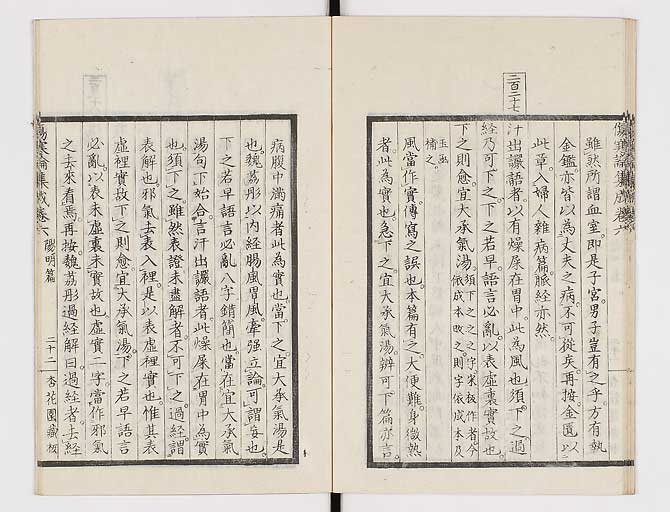 二百二十七
雖然所謂血室即是子宮男子豈有之乎方有執
金鑑亦皆以為丈夫之病不可從矣再按金匱以
此章入婦人雜病篇脈經亦然
汗出讝語者以有燥屎在胃中此為風也須下之過
經乃可下之下之若早語言必亂以表虛裏實故也
下之則愈宜大承氣湯須下之之字宋板作者今依成本改之則字依成本及
玉函補之
風當作實傳寫之誤也本篇有之大便難身微熱
者此為實也急下之宜大承氣湯辨可下篇亦言
病腹中滿痛者此為實也當下之宜大承氣湯是
也魏荔彤以內經腸風胃風牽強立論可謂妄也
下之若早語言必亂八字錯簡也當在宜大承氣
湯句下始合言汗出讝語者此燥屎在胃中為實
也須下之雖然表證未盡解者不可下之過經謂
表解也邪氣去表入裡是以表虛裡實也惟其表
虛裡實故下之則愈宜大承氣湯下之若早語言
必亂以表未虛裏未實故也虛實二字當作邪氣
之去來看焉再按魏荔彤過經解曰過經者去經
傷寒論集成卷六 陽明篇 二十二 杏花園藏板